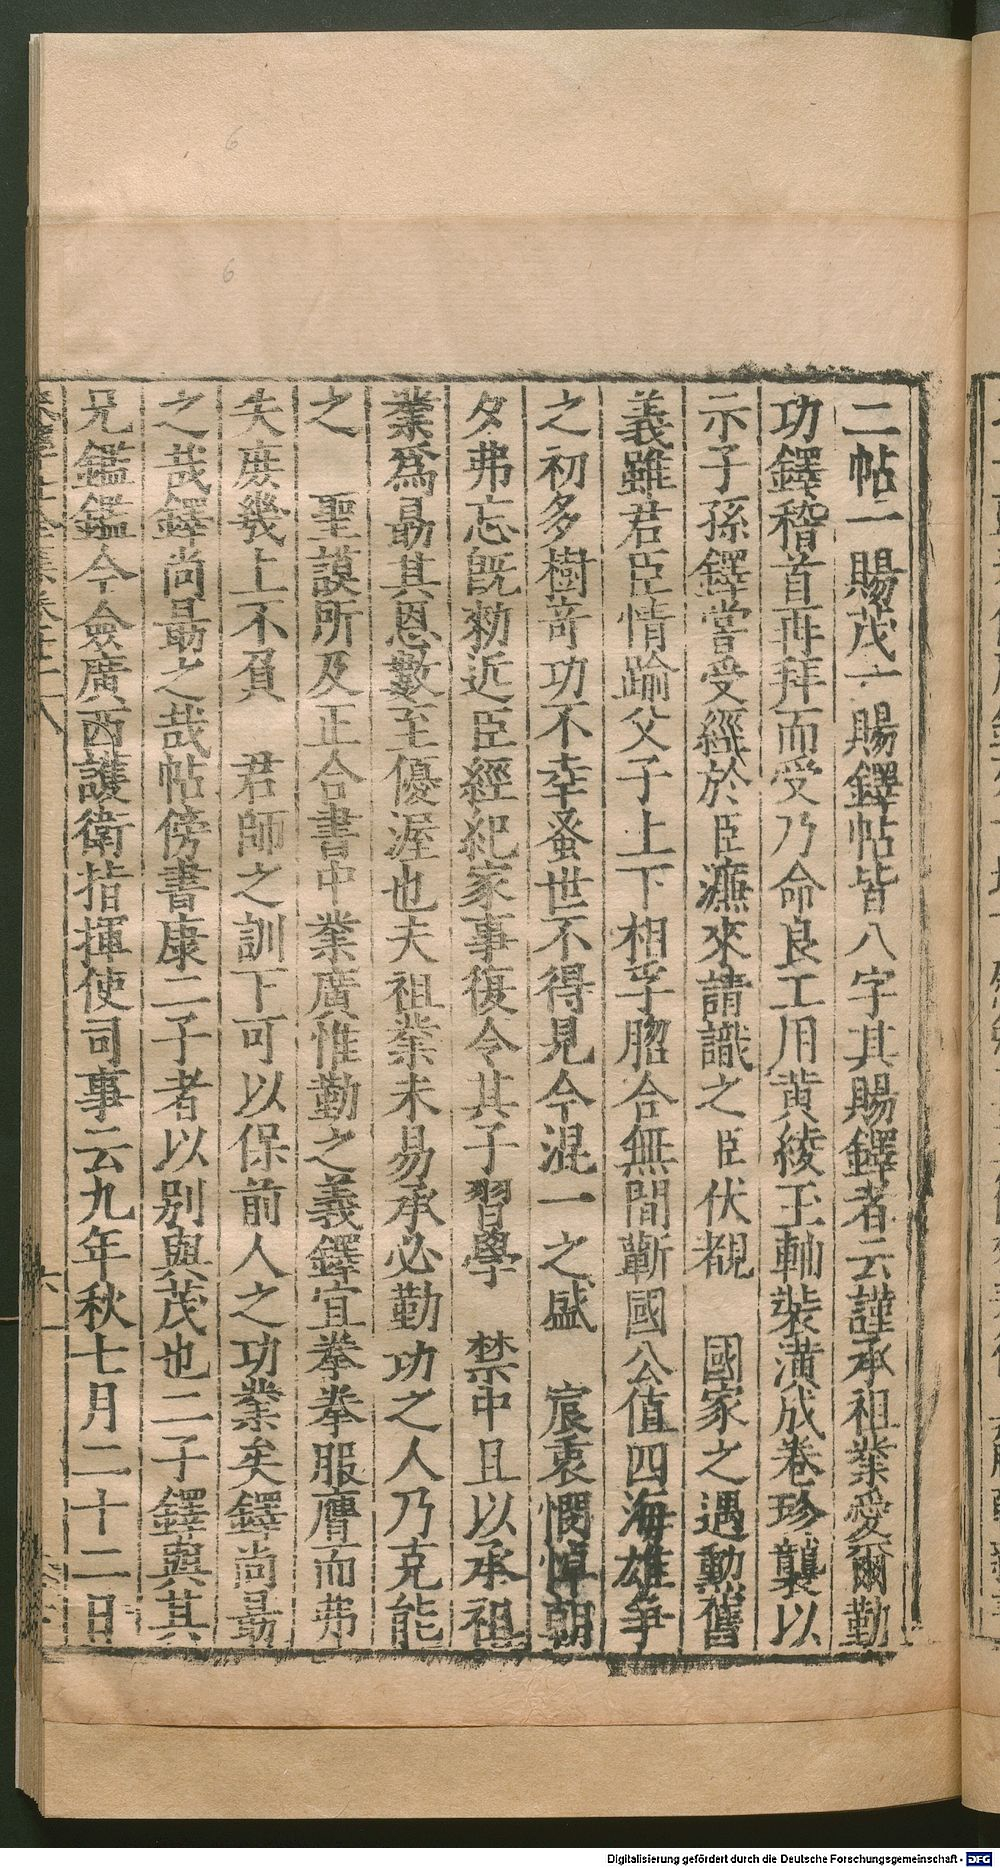 二帖一賜茂一賜鐸帖皆八字其賜鐸者云謹承祖業愛爾勤
功鐸稽首再拜而受乃命良工用黄綾玉軸裝潢成卷珍襲以
示子孫鐸嘗受經於臣濂來請識之臣伏覩　國家之遇勳舊
義雖君臣情踰父子上下相孚脗合無間蘄國公值四海雄爭
之初多樹竒功不幸蚤世不得見今混一之盛　宸衷憫悼朝
夕弗忘旣勑近臣經紀家事復令其子習學　禁中且以承祖
業爲勗其恩數至優渥也夫祖業未易承必勤功之人乃克能
之　聖謨所及正合書中業廣惟勤之義鐸宜拳拳服膺而弗
失庻幾上不負　君師之訓下可以保前人之功業矣鐸尚勗
之哉鐸尚勗之哉帖傍書康二子者以别與茂也二子鐸巽其
兄鑑鑑今僉廣西護衛指揮使司事云九年秋七月二十二日
6
6
Digitalisierung gefördert durch die Deutsche Forschungsgemeinschaft - DFG